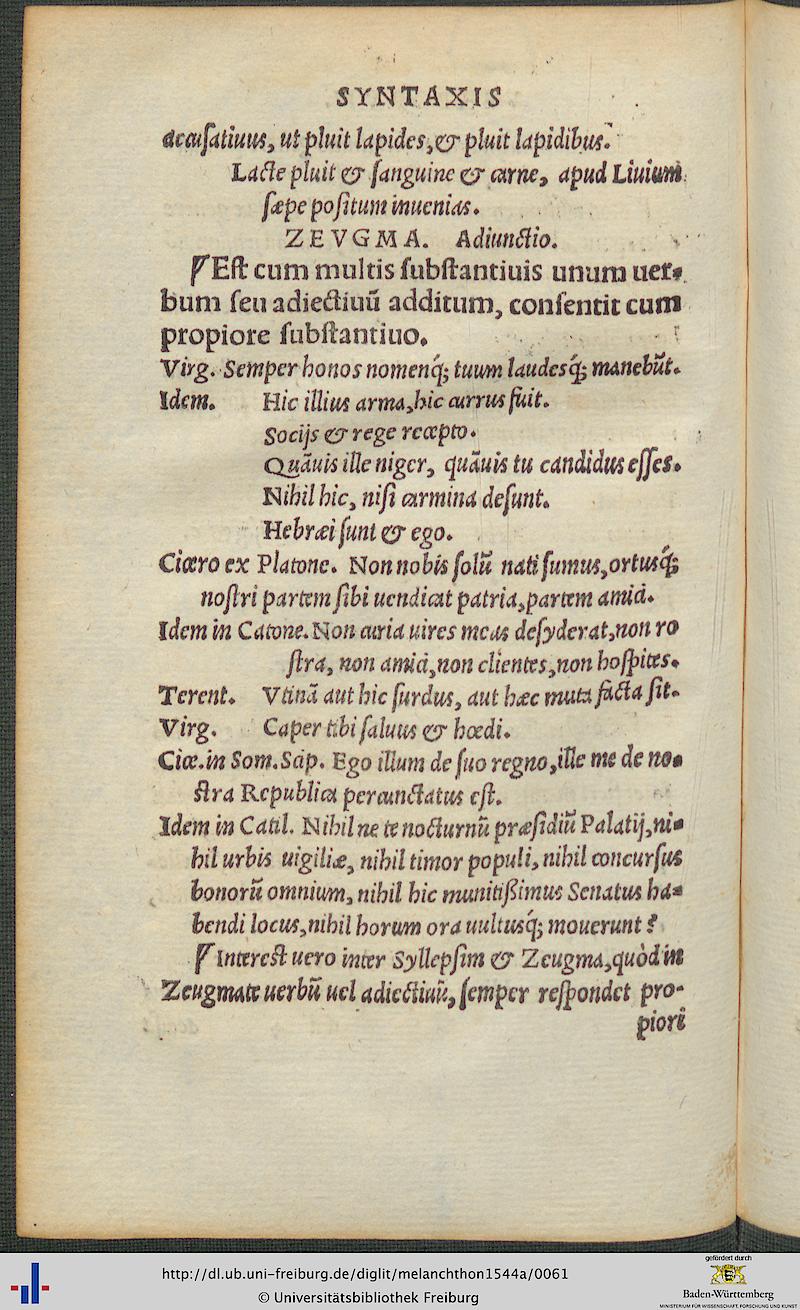 SYNTAXIS
accusatiuus, ut pluit lapides, & pluit lapidibus.
Lacte pluit & sanguine & carne, apud Liuium
sæpe positum inuenias.
ZEVGMA. Adiunctio.
Est cum multis substantiuis unum uer-
bum seu adiectiuũ additum, consentit cum
propiore substantiuo.
Virg. Semper honos nomenq́; tuum laudesq́; manebũt.
Idem. Hic illius arma, hic currus fuit.
Socijs & rege recepto.
Quãuis ille niger, quãuis tu candidus esses.
Nihil hic, nisi carmina desunt.
Hebræi sunt & ego.
Cicero ex Platone. Non nobis solũ nati sumus, ortusq́;
nostri partem sibi uendicat patria, partem amici.
Idem in Catone. Non curia uires meas desyderat, non ro
stra, non amici, non clientes, non hospites.
Terent. Vtinã aut hic surdus, aut hæc muta facta sit.
Virg. Caper tibi saluus & hœdi.
Cice. in Som. Scip. Ego illum de suo regno, ille me de no-
stra Republica percunctatus est.
Idem in Catil. Nihil ne te nocturnũ præsidiũ Palatij, ni-
hil urbis uigiliæ, nihil timor populi, nihil concursus
bonorũ omnium, nihil hic munitißimus Senatus ha-
bendi locus, nihil horum ora uultusq́; mouerunt?
Interest uero inter Syllepsim & Zeugma, quòd in
Zeugmate uerbũ uel adiectiuũ, semper respondet pro-
piori
http://dl.ub.uni-freiburg.de/diglit/melanchthon1544a/0061
© Universitätsbibliothek Freiburg
gefördert durch
Baden-Württemberg
MINISTERIUM FÜR WISSENSCHAFT, FORSCHUNG UND KUNST